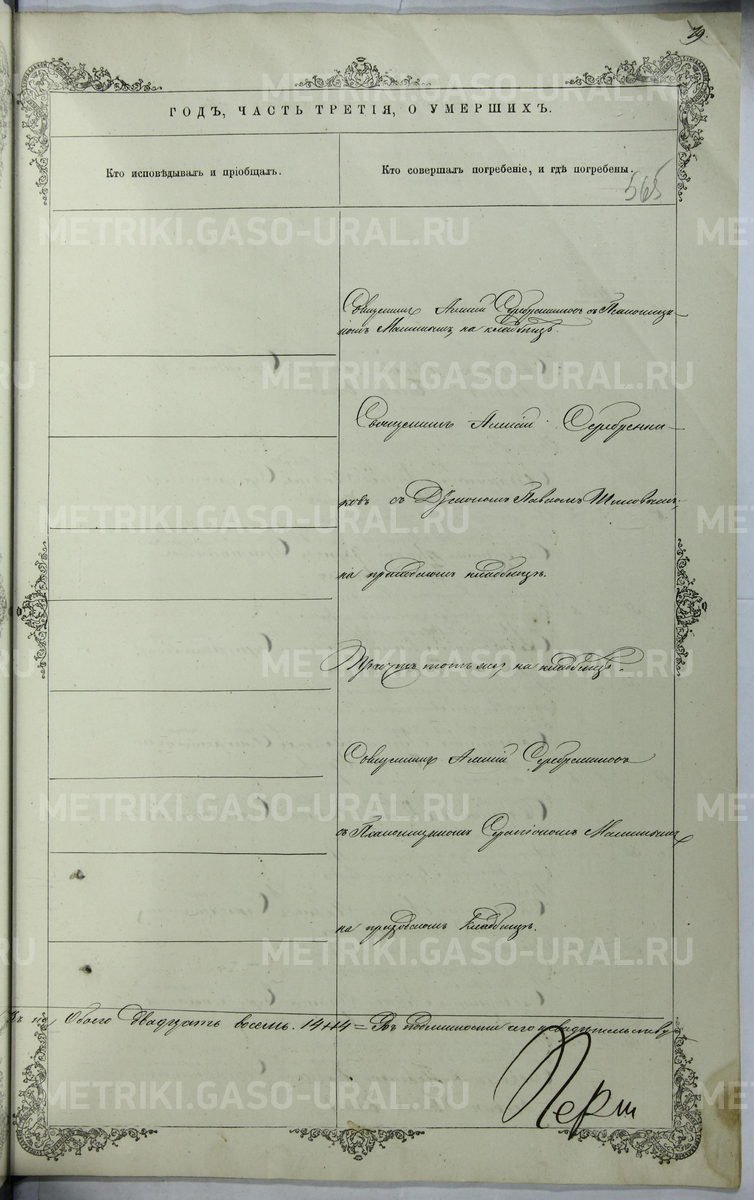 19.
ГОДЪ, ЧАСТЬ ТРЕТІЯ, О УМЕРШИХЪ.
Кто исповѣдывалъ и пріобщалъ.
Кто совершалъ погребеніе, и гдѣ погребены.
565
Священникъ Алексій Серебренниковъ съ Псаломщи-
комъ Малининымъ на кладбищѣ.
Священникъ Алексій Серебренни-
ковъ съ Діакономъ Павломъ
на приходскомъ кладбищѣ.
на кладбищѣ.
Священникъ Алексій Серебренниковъ
съ Псаломщикомъ Малининымъ
на приходскомъ кладбищѣ.
Обоего двадцать восемь. 14+14= Въ подлинности сего свидѣтельствую
METRIKI.GASO-URAL.RU